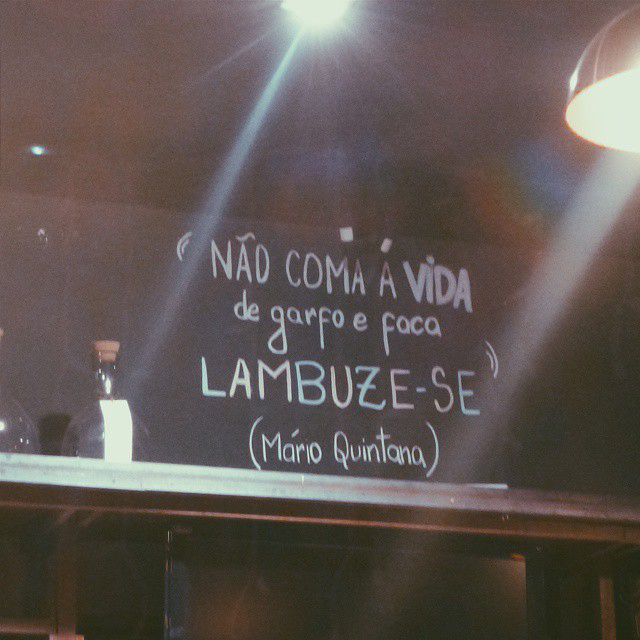 “NÃO COMA A VIDA
de garfo e faca
LAMBUZE-SE”
(Mário Quintana)